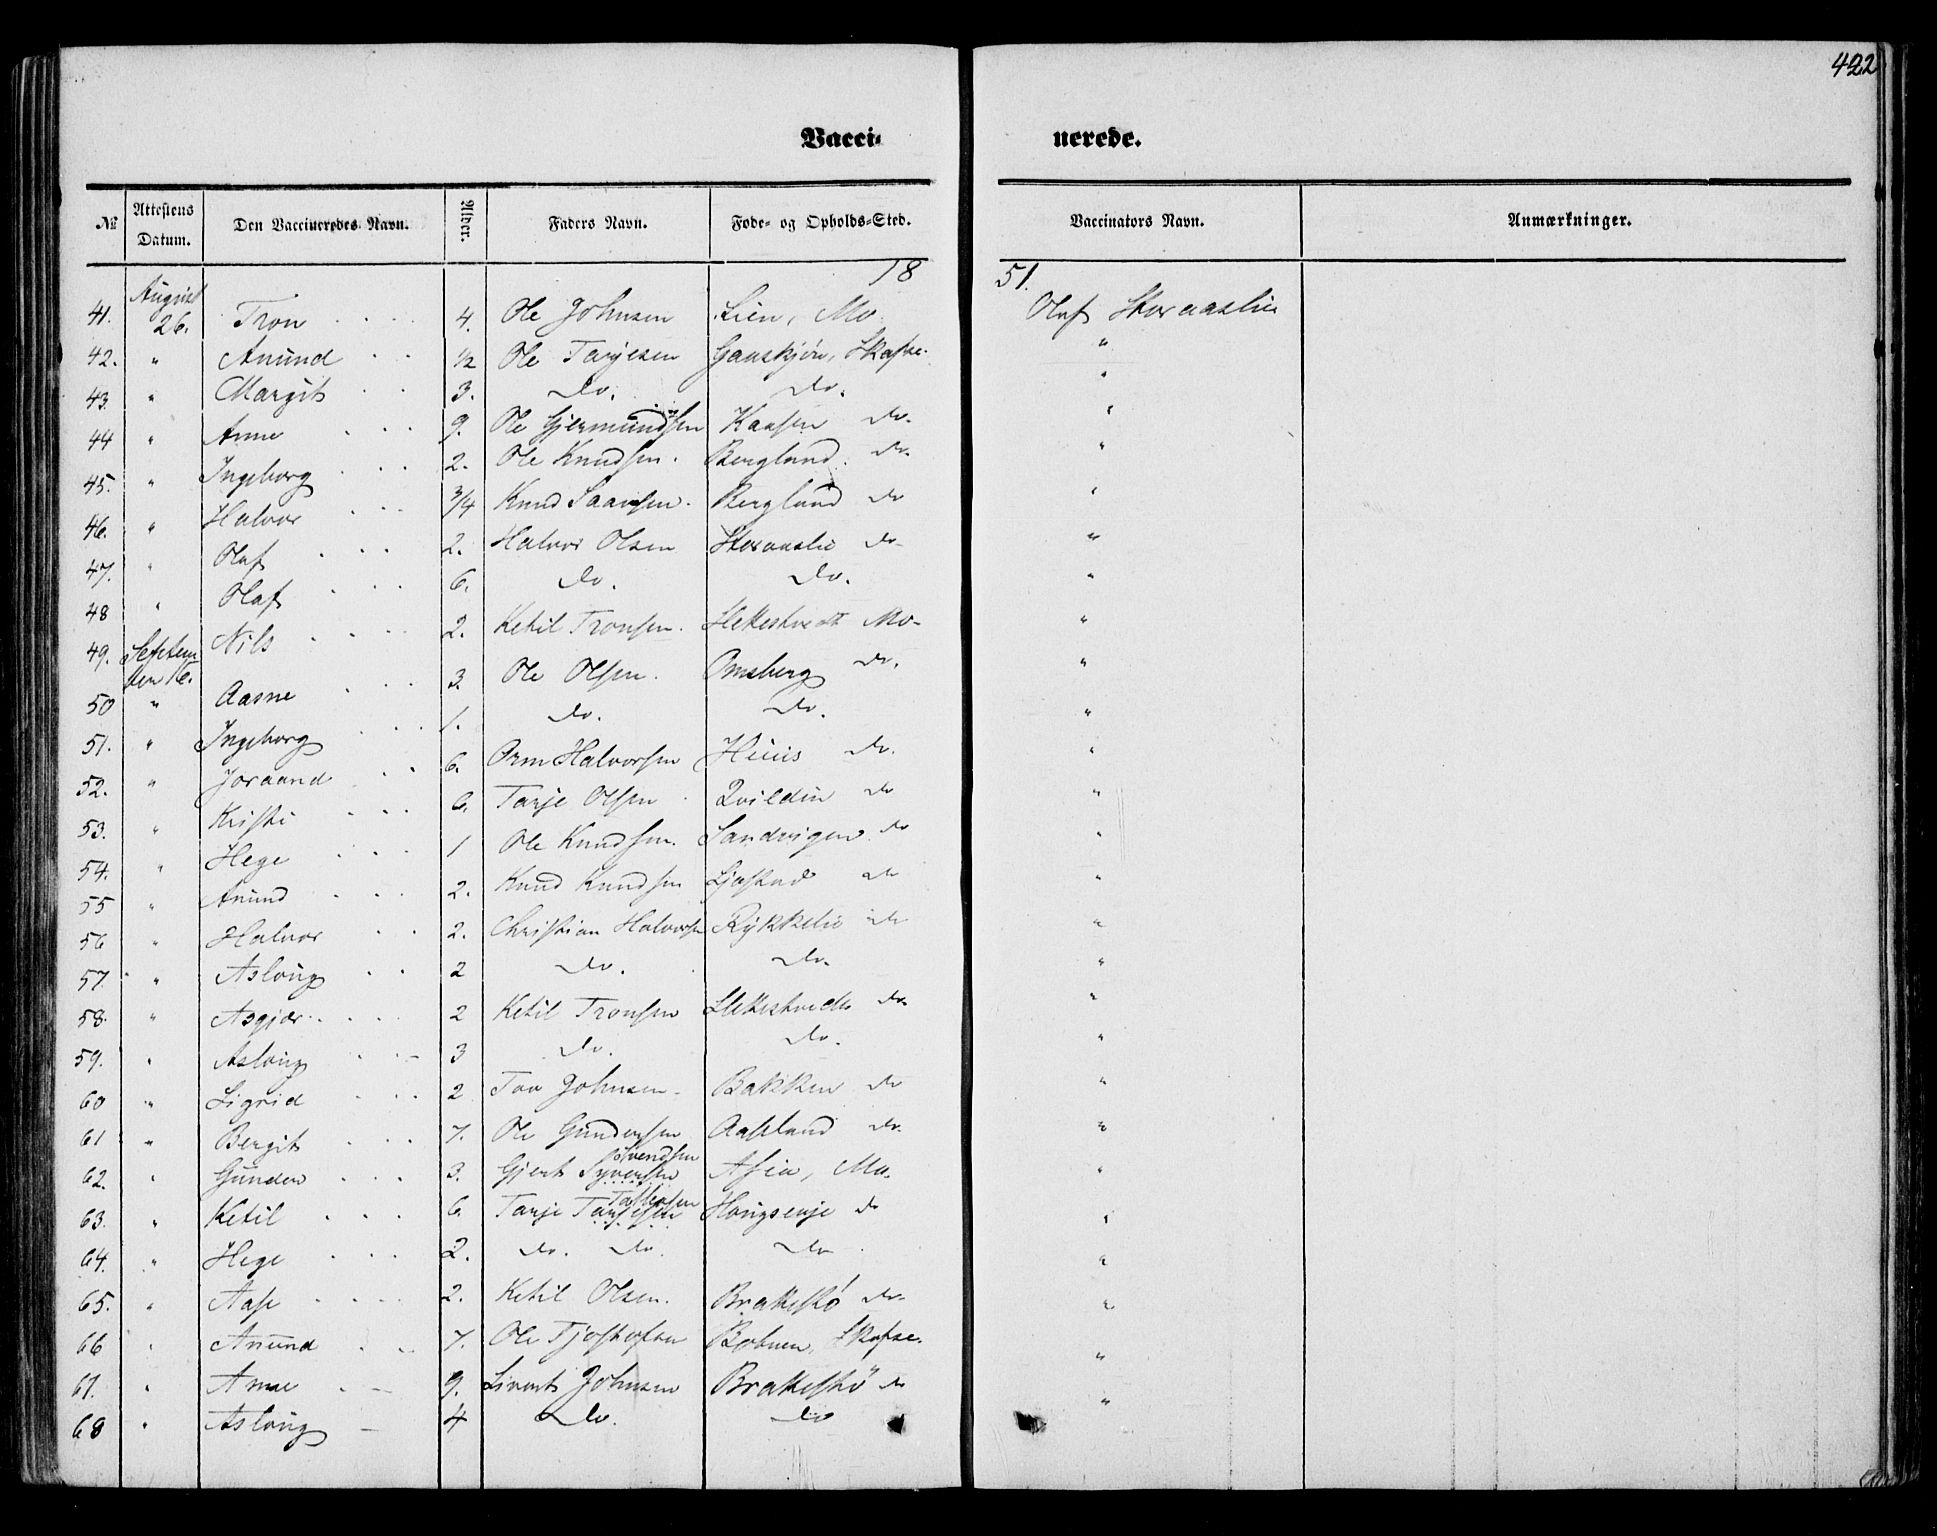 422
Vacci- nerede.
№ Attestens Datum. Den Vaccineredes Navn. Alder. Faders Navn. Føde- og Opholds-Sted. Vaccinators Navn. Anmærkninger.
18 51.
41. August 26. Tron 4. Ole Johnsen Lien, Mo. Olaf Storaaslie
42. " Anund 1/2 Ole Tarjesen Skafse. "
43. " Margit 3. do. do. "
44 " Anne 9. Ole Gjermundsen Kaasen do. "
45. " Ingeborg 2. Ole Knudsen. Bergland. do. "
46. " Halvor 3/4 Knud Saavesen. Bergland do "
47. " Olaf 2. Halvor Olsen Storaaslie do "
48 " Olaf 6. do. do. "
49. September 16. Nils 2. Ketil Tronsen. Slettestvedt Mo. "
50 " Aasne 3. Ole Olsen. Omsberg do. "
51. " Ingeborg 1. do. do. "
52. " Joraand 6. Orm Halvorsen Huus do. "
53. " Kristi 6. Tarje Olsen Qvildin do "
54. " Hege 1 Ole Knudsen. Sandvigen do "
55 " Anund 2. Knud Knudsen Ljostad do "
56 " Halvor 2. Christian Halvorsen Rykkelie do "
57. " Asloug 2 do. do. "
58. " Asgjær 2 Ketil Tronsen Slettestvedt do "
59. " Asloug 3 do. do. "
60 " Sigrid 2 Tov Johnsen Bakken do "
61 " Bergit 7. Ole Gundersen Aasland do. "
62. " Gunder 3. Gjert Syversen Svendsen Mo. "
63. " Ketil 6. Tarje Tarjesen Haugsenje do "
64. " Hege 2. do. do. do "
65. " Aase 2. Ketil Olsen. Brakeskø do. "
66 " Anund 7. Ole Tjostofsen Skafse. "
67. " Anne 9. Sivert Johnsen Brakeskø do "
68 " Asloug 4 do. do